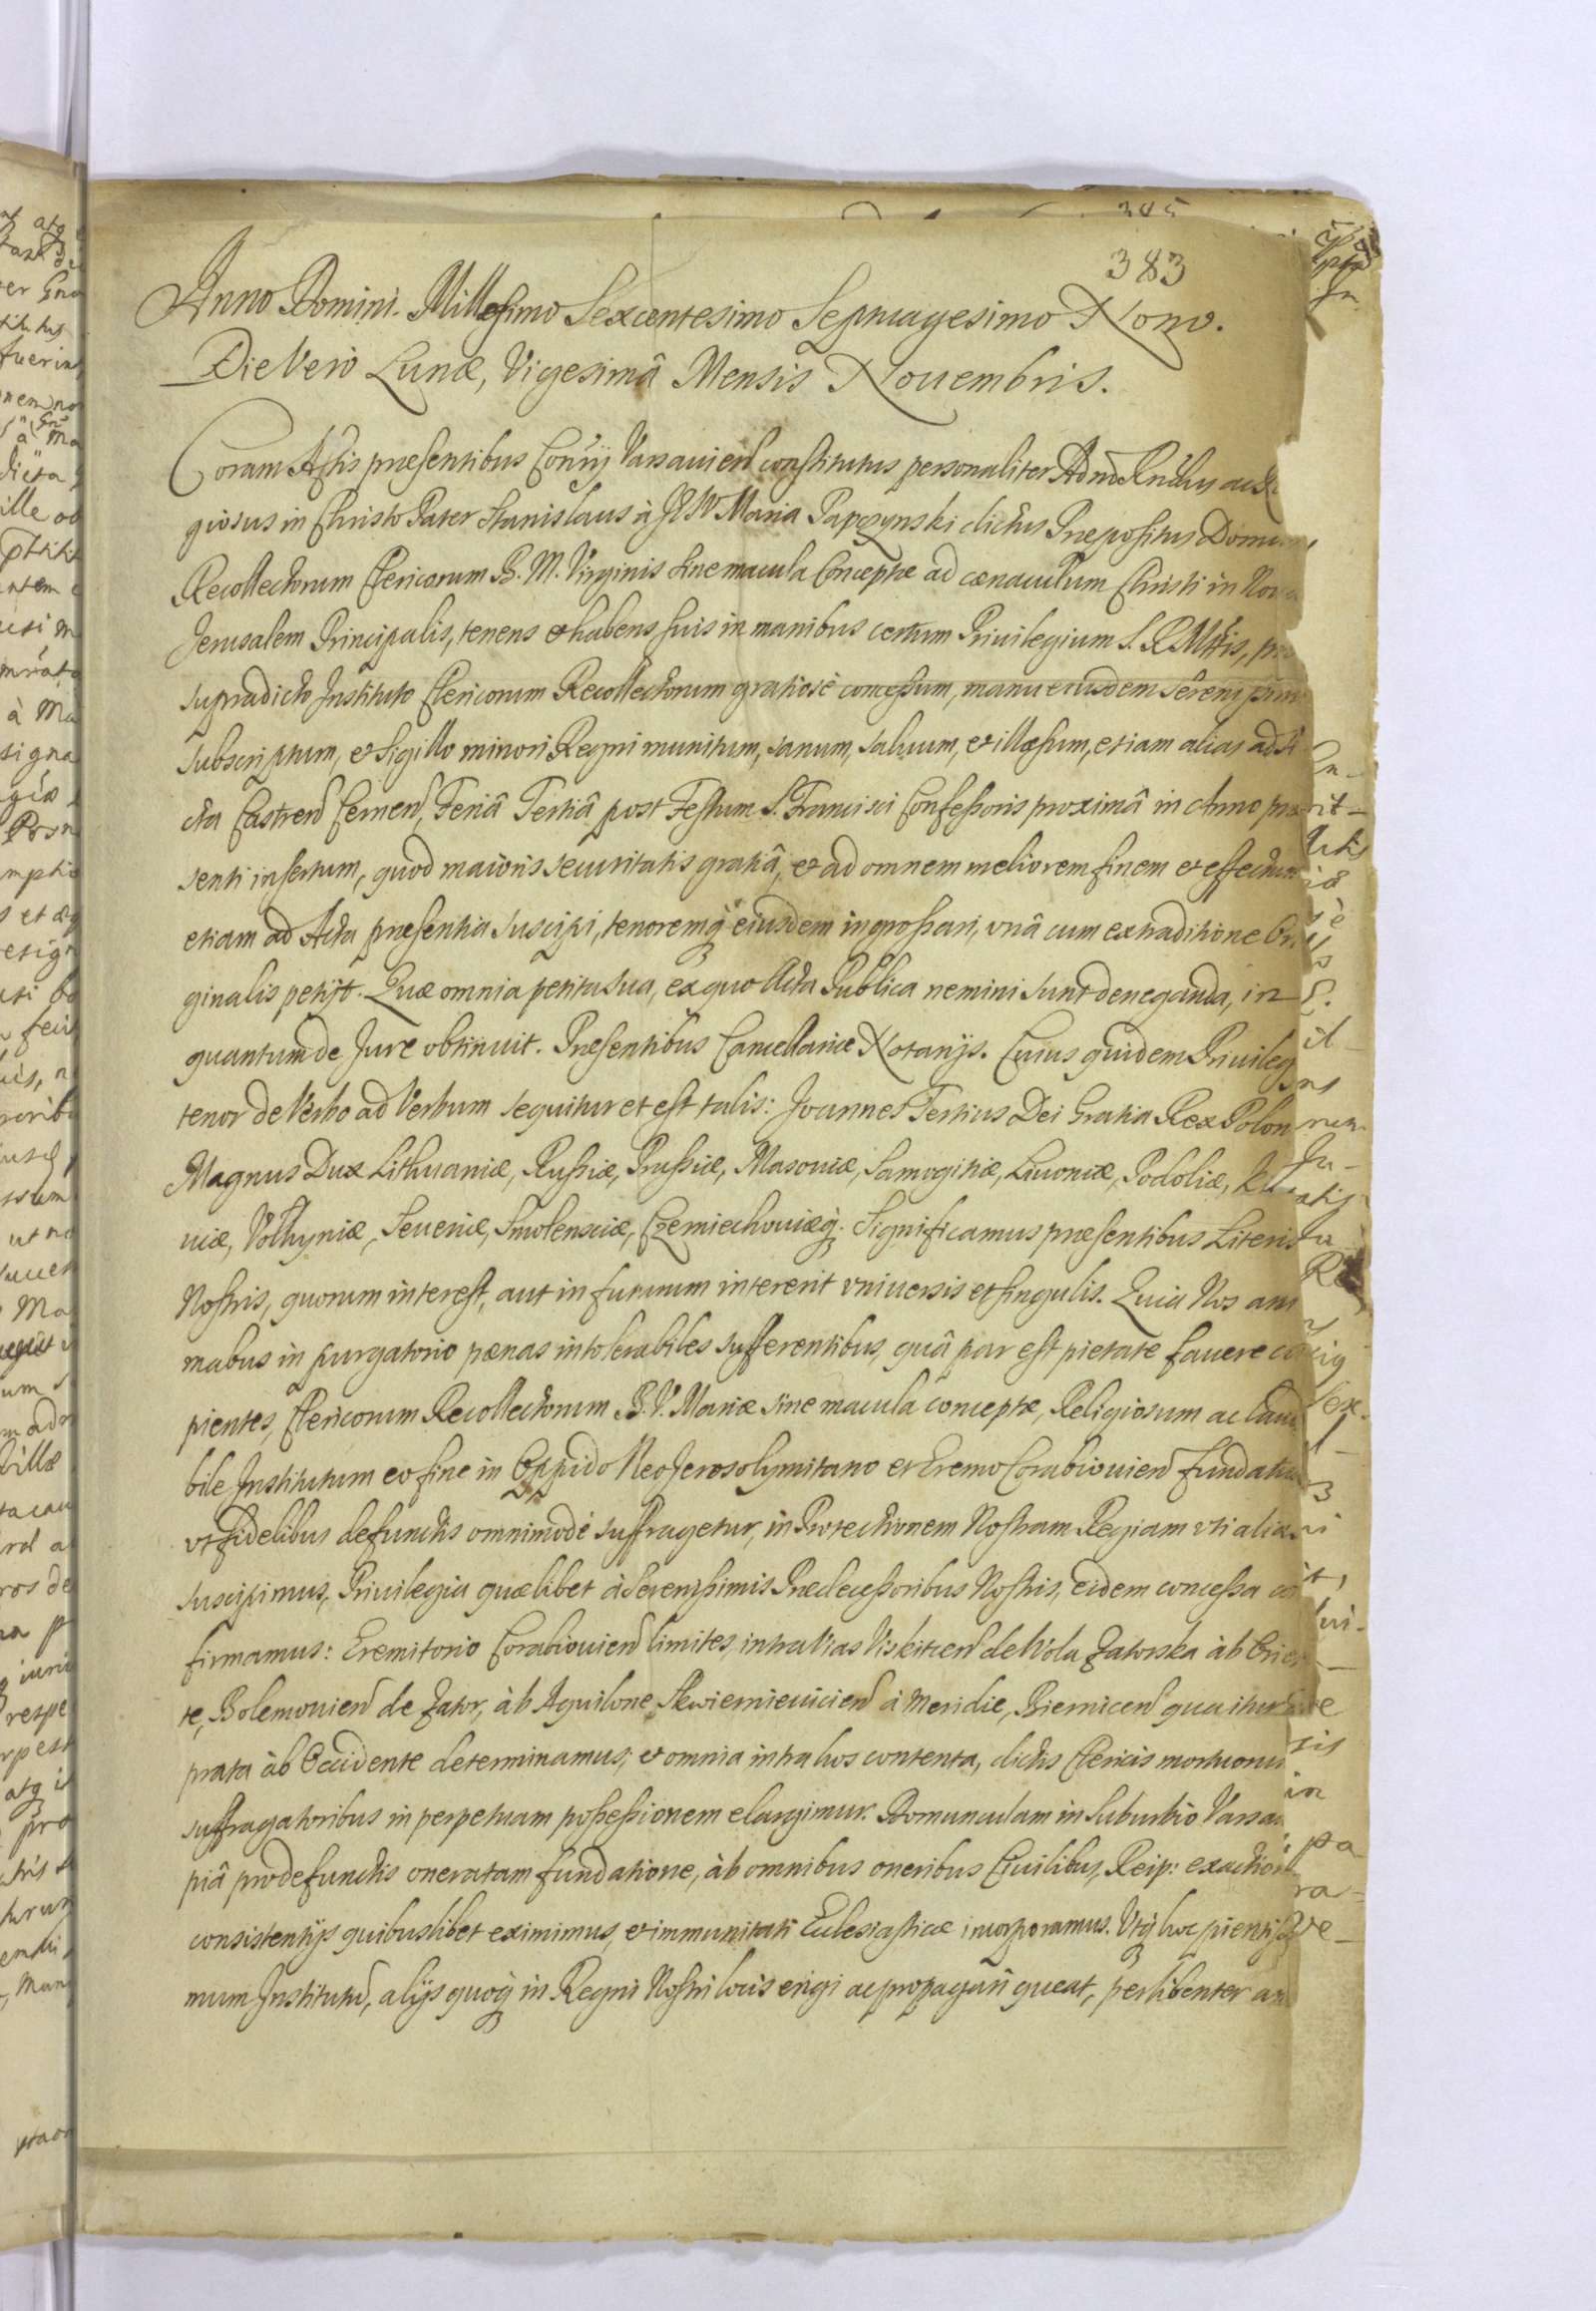 345
383
Anno Domini. Millesimo Sexcentesimo Septuagesimo Nono.
Die Vero Lunæ, Vigesimâ Mensis Nouembris.
Coram Actis præsentibus Conŝŷ Varsauien̄ constitutus personaliter Adm̄ Rn̄dus ac
giosus in Christo Pater Stanislaus à JESV Maria Papczynski dictus Præpositus Domus
Recollectorum Clericorum B. M. Virginis sine macula Conceptæ ad cænaculum Christi in Noua
Jerusalem Principalis, tenens et habens suis in manibus certum Priuilegium S. R. Mŧtis, pro
supradicto Instituto Clericorum Recollectorum gratiosè concessum, manu eiusdem Serenissimi
subscriptum, et Sigillo minori Regni munitum, sanum, saluum, et illæsum, etiam alias ad A
cta Castren̄ Cernen̄, Feriâ Tertiâ post Festum S. Francisci Confessoris proximâ in Anno præ
senti insertum, quod maioris securitatis gratiâ, et ad omnem meliorem finem et effectum
etiam ad Acta præsentia suscipi, tenoremq́ eiusdem ingrossari, vnâ cum extraditione Ori
ginalis petijt. Quæ omnia petita sua, ex quo Acta Publica nemini sunt deneganda, in
quantum de Jure obtinuit. Præsentibus Cancellariæ Notarijs. Cuius quidem Priuileg
tenor de Verbo ad Verbum sequitur et est talis: Joannes Tertius Dei Gratia Rex Polon
Magnus Dux Lithuaniæ, Russiæ, Prussiæ, Masouiæ, Samogitiæ, Liuoniæ, Podoliæ, Kijo
uiæ, Volhyniæ, Seueriæ, Smolensciæ, Czerniechouiæq́. Significamus præsentibus Literis
Nostris, quorum interest, aut in futurum intererit vniuersis et singulis. Quia Nos ani
mabus in purgatorio pænas intolerabiles sufferentibus, quâ par est pietate fauere cu
pientes, Clericorum Recollectorum B. V. Mariæ sine macula conceptæ, Religiosum ac lauda
bile Institutum eo fine in Oppido Neo Jerosolymitano et Eremo Corabiouien̄ fundatum
vt fidelibus defunctis omnimodè suffragetur, in Protectionem Nostram Regiam vti alia
suscipimus, Priuilegia quælibet à Serenissimis Prædecessoribus Nostris, eidem concessa con
firmamus: Eremitorio Corabiouien̄ limites, intra Vias Viskitien̄ de Wola Zatorska àb Orien
te, Bolemouien̄ de Zator, àb Aquilone Skwierniewicien̄ à Meridie, Biernicen̄ qua itur
prata àb Occidente determinamus; et omnia intra hos contenta, dictis Clericis mortuorum
suffragatoribus in perpetuam possessionem elargimur. Domunculam in Suburbio Varsau
piâ pro defunctis oneratam fundatione, àb omnibus oneribus Ciuilibus, Reip: exactioni
consistentijs quibuslibet eximimus, et immunitati Ecclesiasticæ incorporamus. Vtq́ hoc pientissi
mum Institutū, alijs quoq́ in Regni Nostri locis erigi ac propagari queat, perlibenter an